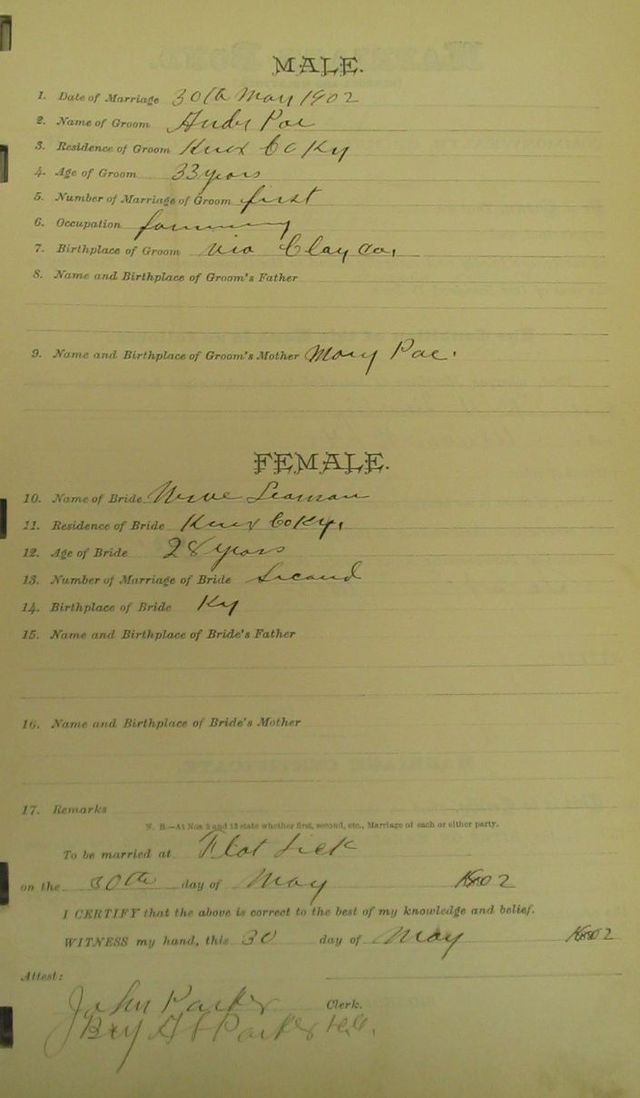 MALE.
1. Date of Marriage 30th May 1902
2. Name of Groom Andy Poe
3. Residence of Groom Knox Co Ky
4. Age of Groom 33 years
5. Number of Marriage of Groom first
6. Occupation farming
7. Birthplace of Groom Clay Co,
8. Name and Birthplace of Groom's Father
9. Name and Birthplace of Groom's Mother Mary Poe.
FEMALE.
10. Name of Bride
11. Residence of Bride Knox Co Ky,
12. Age of Bride 28 years
13. Number of Marriage of Bride Second
14. Birthplace of Bride Ky
15. Name and Birthplace of Bride's Father
16. Name and Birthplace of Bride's Mother
17. Remarks
N. B.—At Nos 5 and 13 state whether first, second, etc., Marriage of each or either party.
To be married at Flat Lick
on the 30th day of May 1902
I CERTIFY that the above is correct to the best of my knowledge and belief.
WITNESS my hand, this 30 day of May 1902
Attest:
John Parker Clerk.
By Parker